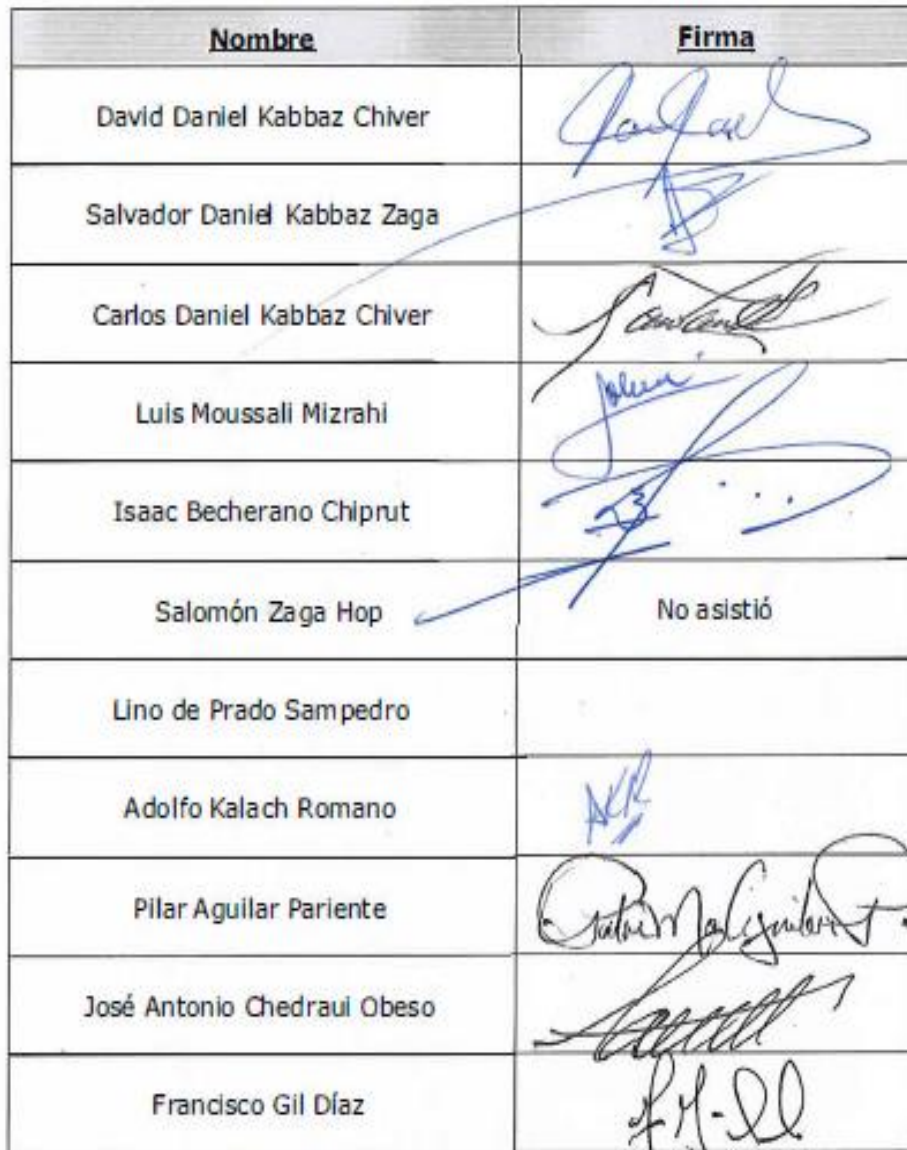 Nombre Firma
David Daniel Kabbaz Chiver
Salvador Daniel Kabbaz Zaga
Carlos Daniel Kabbaz Chiver
Luis Moussali Mizrahi
Isaac Becherano Chiprut
Salomón Zaga Hop No asistió
Lino de Prado Sampedro
Adolfo Kalach Romano AKR
Pilar Aguilar Pariente
José Antonio Chedraui Obeso
Francisco Gil Díaz